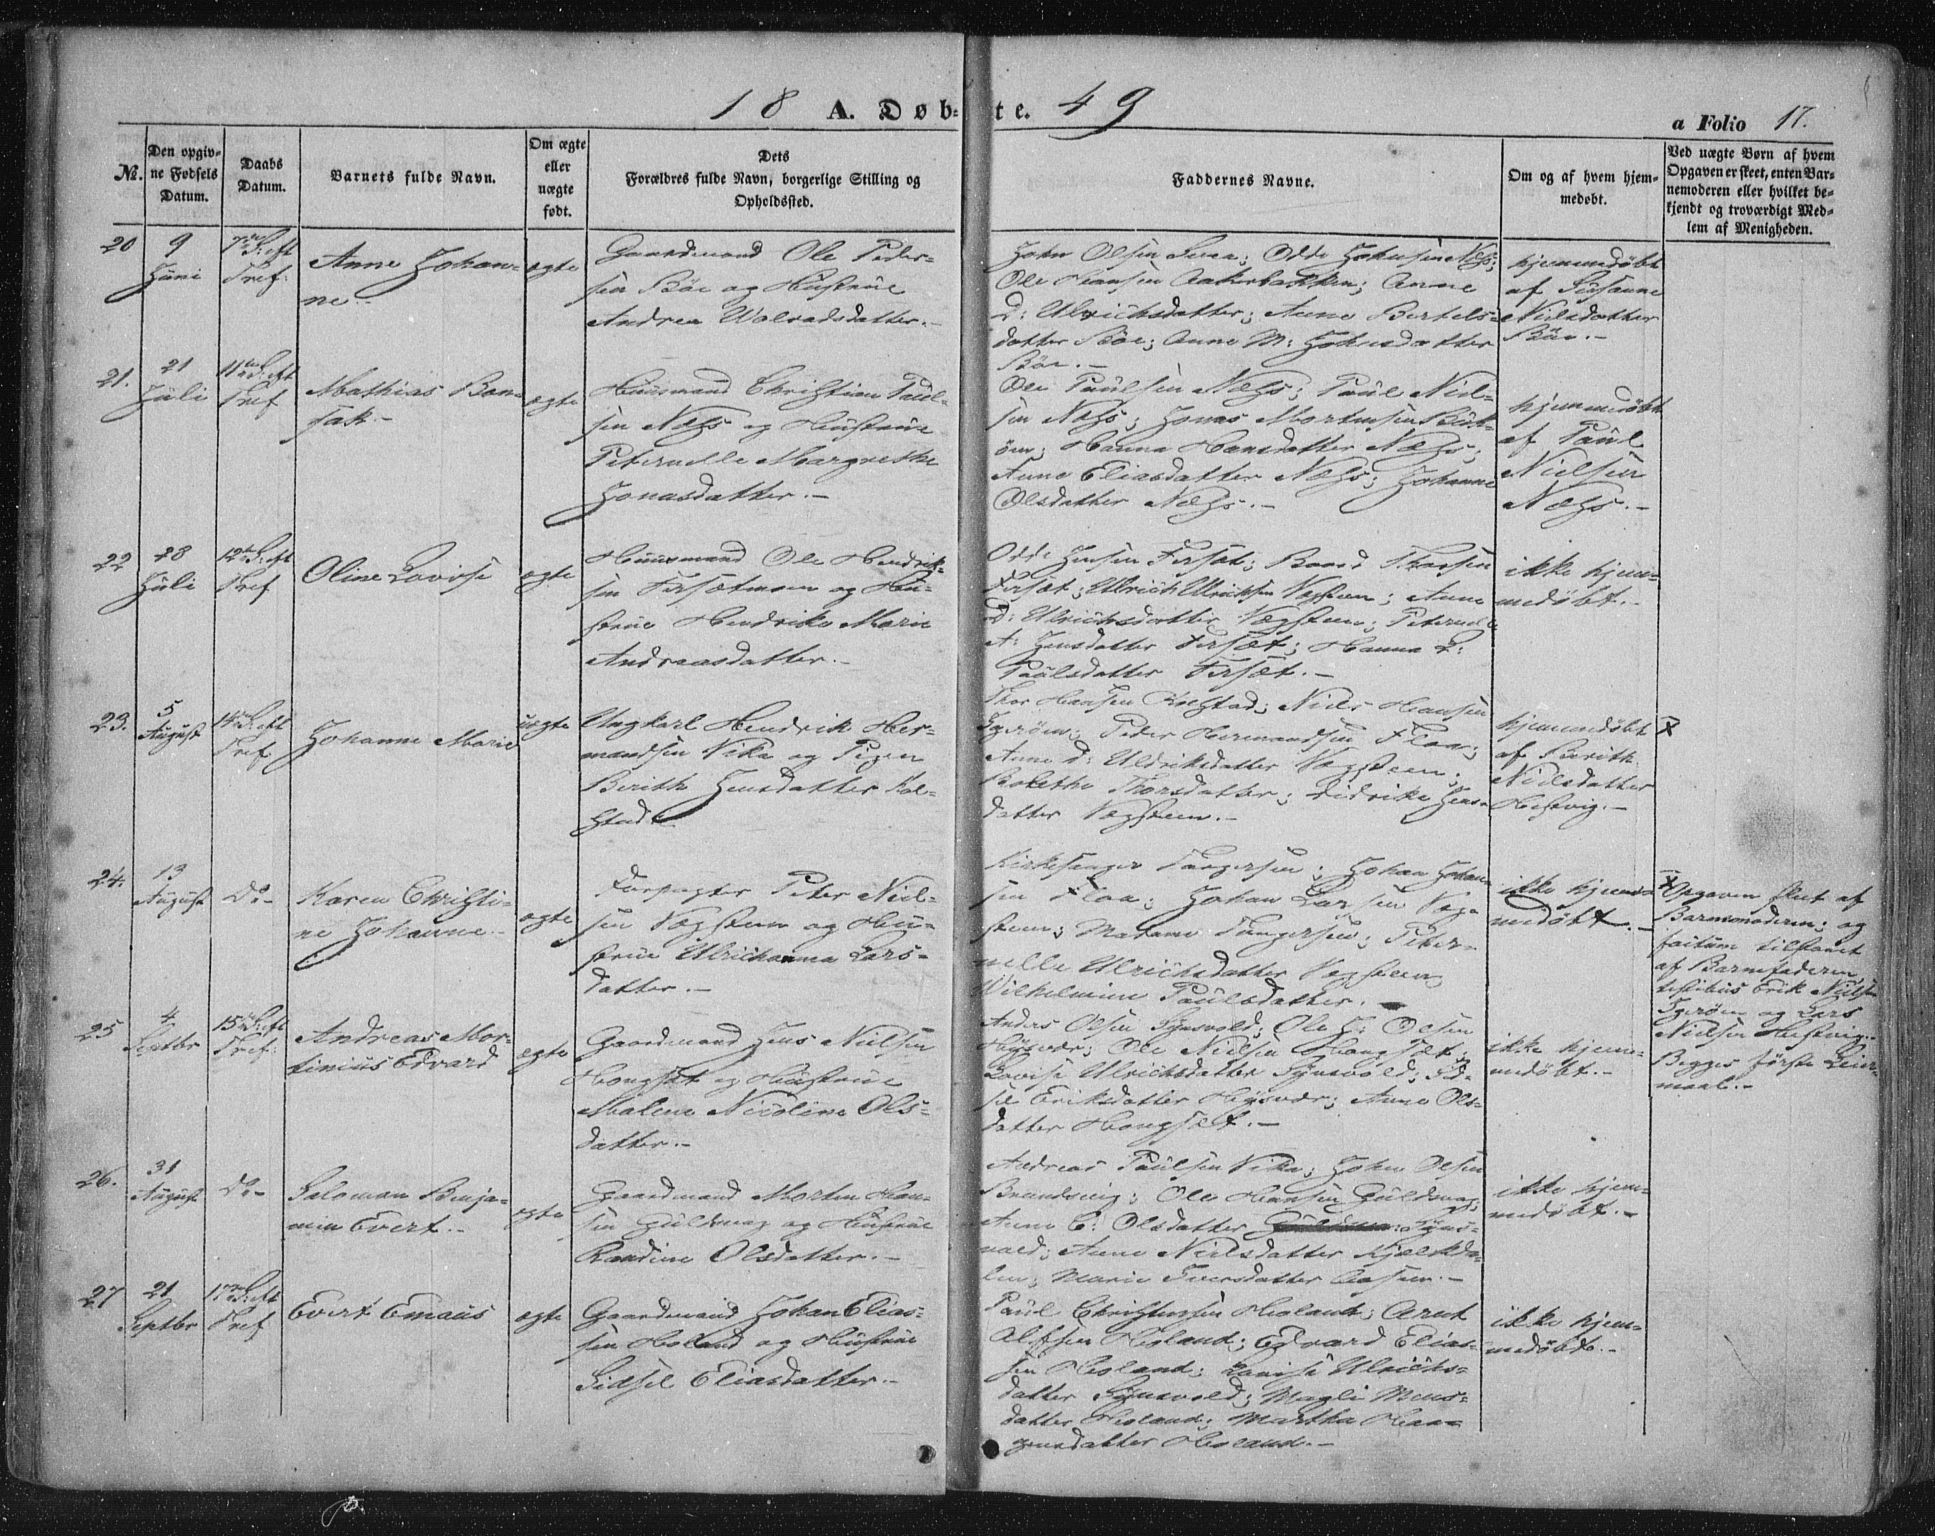 18 A. Døb- te. 49
a Folio 17.
№.
Den opgiv-
ne Fødsels
Datum.
Daabs
Datum.
Barnets fulde Navn.
Om ægte
eller
uægte
født.
Dets
Forældres fulde Navn, borgerlige Stilling og
Opholdssted.
Faddernes Navne.
Om og af hvem hjem-
medøbt.
Ved uægte Børn af hvem
Opgaven er skeet, enten Bar-
nemoderen eller hvilket be-
kjendt og troværdigt Med-
lem af Menigheden.
20
9
Juni
7de S: eft
Tref:
Anne Johan-
ne.-
ægte
Gaardmand Ole Peder-
sen Böe og Hustrue
Andrea Wolradsdatter.-
John Olsen; Odde Johnsen Næss;
Ole Hansen Aakerbakken; Anne
D: Ulrichsdatter; Anne Bertels-
datter Böe; Anne M: Johnsdatter
Böe.-
hjemmedøbt
af Susanne
Nielsdatter
Böe.-
21.
21
Juli
11te S: eft
Tref
Mathias Bon-
sak.-
ægte
Huusmand Christian Paul-
sen Næss og Hustrue
Peternelle Margrethe
Jonasdatter.-
Ole Paulsen Næss; Paul Niel-
sen Næss; Jonas Mortensen Buk-
øen; Hanna Hansdatter Næss;
Anne Eliasdatter Næss; Johanne
Olsdatter Næss.-
hjemmedøbt
af Paul
Nielsen
Næss.-
22
28
Juli
12te S: eft
Tref
Oline Lovise
ægte
Huusmand Ole Hendrik-
sen Forsætmoen og Hu-
strue Hendrikke Marie
Andreasdatter.-
Odde Jensen Forsæt; Baard Thorsen
Forsæt; Ulrich Ulrichsen Vægsteen; Anne
D: Ulrichsdatter Vægsteen; Peternelle
A: Jensdatter Forsæt; Hanna L:
Paulsdatter Forsæt.-
ikke hjem-
medøbt.-
23.
5
August
14de S: eft
Tref.
Johanne Marie
uægte
Ungkarl Hendrik Her-
mandsen Vika og Pigen
Berith Jensdatter Kol-
stad.
Thor Hansen Kolstad; Niels Hansen
Igerøen; Peder Hermandsen Floa;
Anne D: Uldriksdatter Vægsteen;
Bolethe Thorsdatter; Didrikke Jens-
datter Vægsteen.-
hjemmedøbt
af Berith
Nielsdatter
Hestvig.-
x
24.
13
August
Do-
Karen Christi-
ne Johanne.-
ægte
Forpagter Peter Niel-
sen Vægsteen og Hu-
strue Ulrichanna Lars-
datter.-
Kirkesanger Tangersen; Johan Johan-
sen Floa; Johan Larsen Væg-
steen; Madame Tangersen; Peter-
nelle Ulrichsdatter Vægsteen;
Wilhelmine Paulsdatter.
ikke hjem-
medøbt.-
x Opgaven skeet af
Barnemoderen; og
factum tilstaaet
af Barnefaderen
testibus Erik Nielsen
Igerøen og Lars
Nielsen Hestvig.
Begges første Leier-
maal.-
25
4
Septbr
15de S: eft
Tref:
Andreas Mor-
tinius Edvard
ægte
Gaardmand Jens Nielsen
Hongsæt og Hustrue
Malene Nicoline Ols-
datter.-
Anders Olsen Synsvold; Ole J: Olsen
Høysvær; Ole Nielsen Hongsæt;
Lovise Ulrichsdatter Synsvold; Ed-
sel Eriksdatter Høysvær; Anne Ols-
datter Hongsæt.-
ikke hjem-
medøbt.-
26.
31
August
Do-
Salomon Benja-
min Evert.-
ægte
Gaardmand Morten Han-
sen Guldsvag og Hustrue
Randine Olsdatter.-
Andreas Paulsen Vika; John Olsen
Brundsvig; Ole Hansen Guldsvag;
Anne C: Olsdatter Syns-
vold; Anne Nielsdatter Kjelkda-
len; Marie Iversdatter Aasen.-
ikke hjem-
medøbt.-
27
21
Septbr
17de S: eft
Tref
Evert Emaus
ægte
Gaardmand Johan Elias-
sen Holand og Hustrue
Sidsel Eliasdatter.-
Paul Christensen Holand; Arnt
Alfsen Holand; Edvard Elias-
sen Holand; Lovise Ulrichs-
datter Synsvold; Magli Mons-
datter Holand; Martha Haa-
gensdatter Holand.-
ikke hjem-
medøbt.-